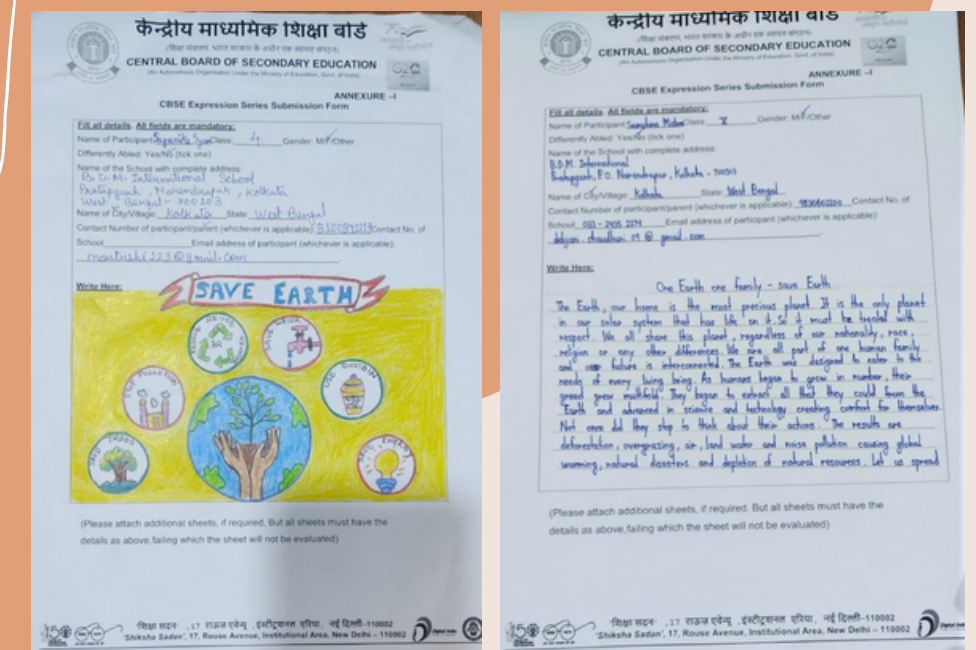 केन्द्रीय माध्यमिक शिक्षा बोर्ड
(शिक्षा मंत्रालय, भारत सरकार के अधीन एक स्वायत्त संगठन)
CENTRAL BOARD OF SECONDARY EDUCATION
(An Autonomous Organisation Under the Ministry of Education, Govt. of India)
G20
ANNEXURE –I
CBSE Expression Series Submission Form
Fill all details. All fields are mandatory:
Name of Participant: Class: 4 Gender: M/F/Other
Differently Abled: Yes/No (tick one)
Name of the School with complete address:
B.D.M. International School
Pratapgarh, Narendrapur, Kolkata
West Bengal- 700103
Name of City/Village: Kolkata State: West Bengal
Contact Number of participant/parent (whichever is applicable): Contact No. of
School Email address of participant (whichever is applicable):
Write Here:
SAVE EARTH
REDUCE REUSE RECYCLE
3R
SAVE WATER
STOP POLLUTION
USE DUSTBIN
SAVE TREES
SAVE ENERGY
(Please attach additional sheets, if required. But all sheets must have the
details as above,failing which the sheet will not be evaluated)
'शिक्षा सदन' ,17 राऊज़ एवेन्यू ,इंस्टीटूशनल एरिया, नई दिल्ली–110002
'Shiksha Sadan', 17, Rouse Avenue, Institutional Area, New Delhi – 110002
Digital India
केन्द्रीय माध्यमिक शिक्षा बोर्ड
(शिक्षा मंत्रालय, भारत सरकार के अधीन एक स्वायत्त संगठन)
CENTRAL BOARD OF SECONDARY EDUCATION
(An Autonomous Organisation Under the Ministry of Education, Govt. of India)
G20
ANNEXURE –I
CBSE Expression Series Submission Form
Fill all details. All fields are mandatory:
Name of Participant: Class: V Gender: M/F/Other
Differently Abled: Yes/No (tick one)
Name of the School with complete address:
B.D.M. International
Pratapgarh, P.O. Narendrapur, Kolkata - 700103
Name of City/Village: Kolkata State: West Bengal
Contact Number of participant/parent (whichever is applicable): Contact No. of
School Email address of participant (whichever is applicable):
Write Here:
One Earth one family - save Earth
The Earth, our home is the most precious planet. It is the only planet
in our solar system that has life on it. So it must be treated with
respect. We all share this planet, regardless of our nationality, race,
religion or any other differences. We are all part of one human family
and our future is interconnected. The Earth was designed to cater to the
needs of every living being. As humans began to grow in number, their
greed grew multifold. They began to extract all that they could from the
Earth and advanced in science and technology creating comfort for themselves.
Not once did they stop to think about their actions. The results are
deforestation, overgrazing, air, land water and noise pollution causing global
warming, natural disasters and depletion of natural resources. Let us spread
(Please attach additional sheets, if required. But all sheets must have the
details as above,failing which the sheet will not be evaluated)
'शिक्षा सदन' ,17 राऊज़ एवेन्यू ,इंस्टीटूशनल एरिया, नई दिल्ली–110002
'Shiksha Sadan', 17, Rouse Avenue, Institutional Area, New Delhi – 110002
Digital India